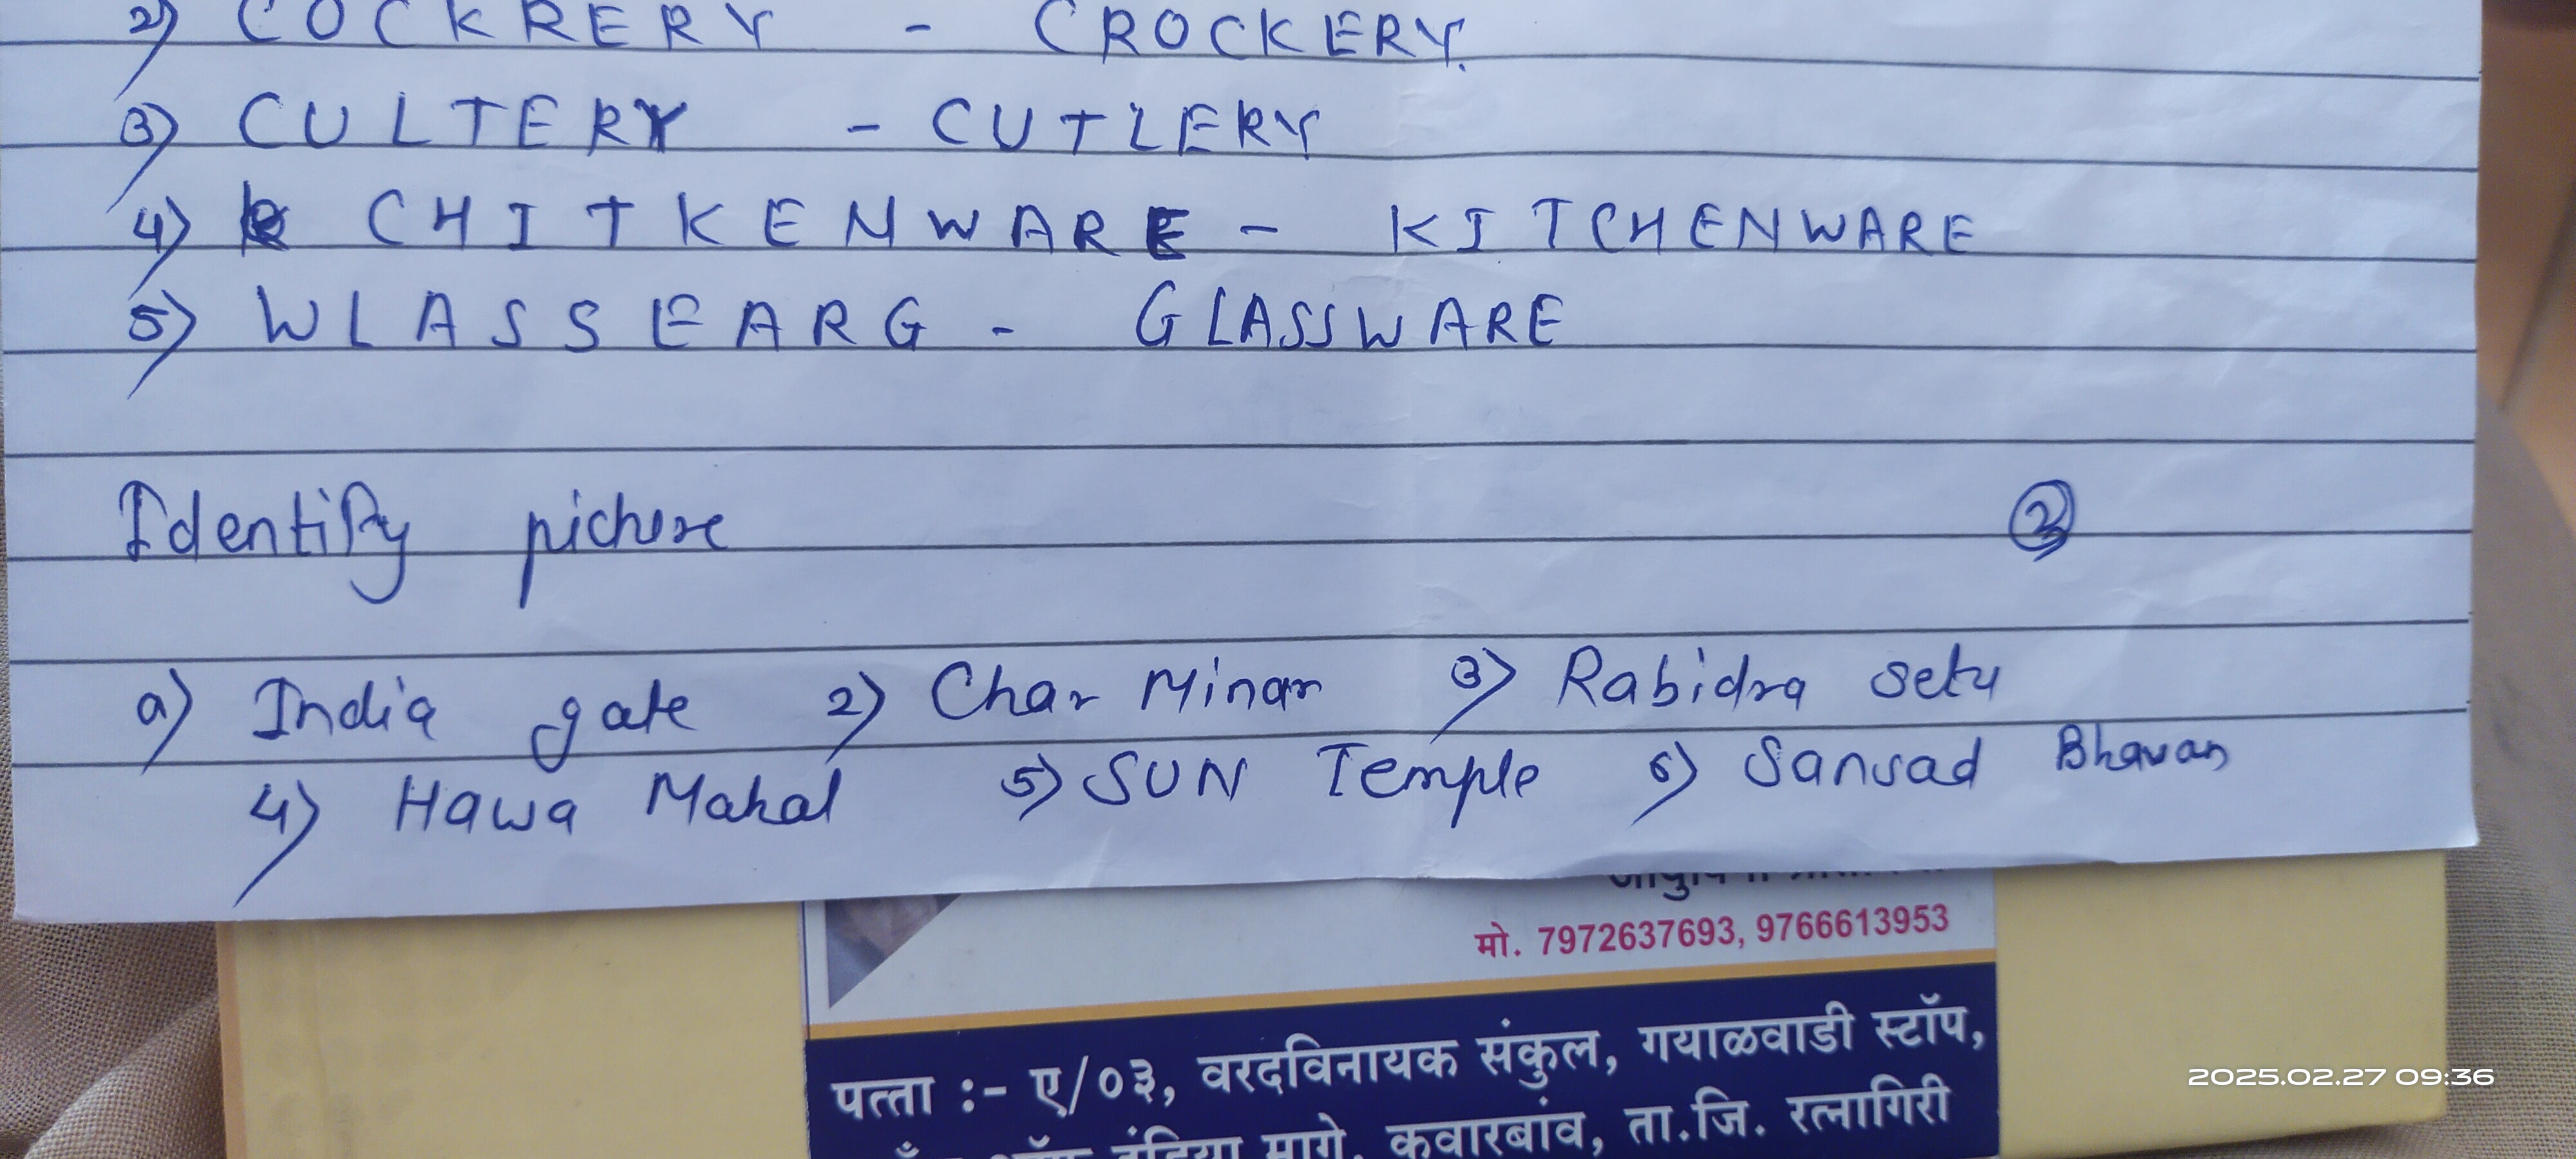 2) COCKRERY - CROCKERY.
3) CULTERY - CUTLERY
4) CHITKENWARE - KITCHENWARE
5) WLASSEARG - GLASSWARE
Identify picture
2
a) India gate 2) Char Minar 3) Rabidra setu
4) Hawa Mahal 5) SUN Temple 6) Sansad Bhavan
मो. 7972637693, 9766613953
पत्ता :- ए/०३, वरदविनायक संकुल, गयाळवाडी स्टॉप,
ऑफ इंडिया मागे, कुवारबांव, ता.जि. रत्नागिरी
2025.02.27 09:36